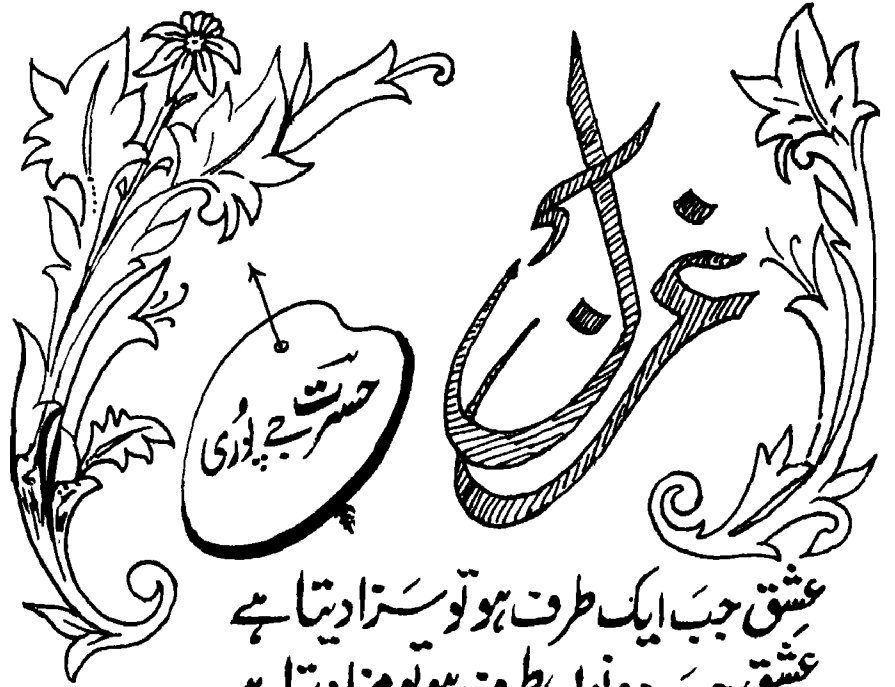 غزل
حسرت جے پوری
عشق جب ایک طرف ہو تو سزا دیتا ہے
عشق جب دونوں طرف ہو تو مزا دیتا ہے